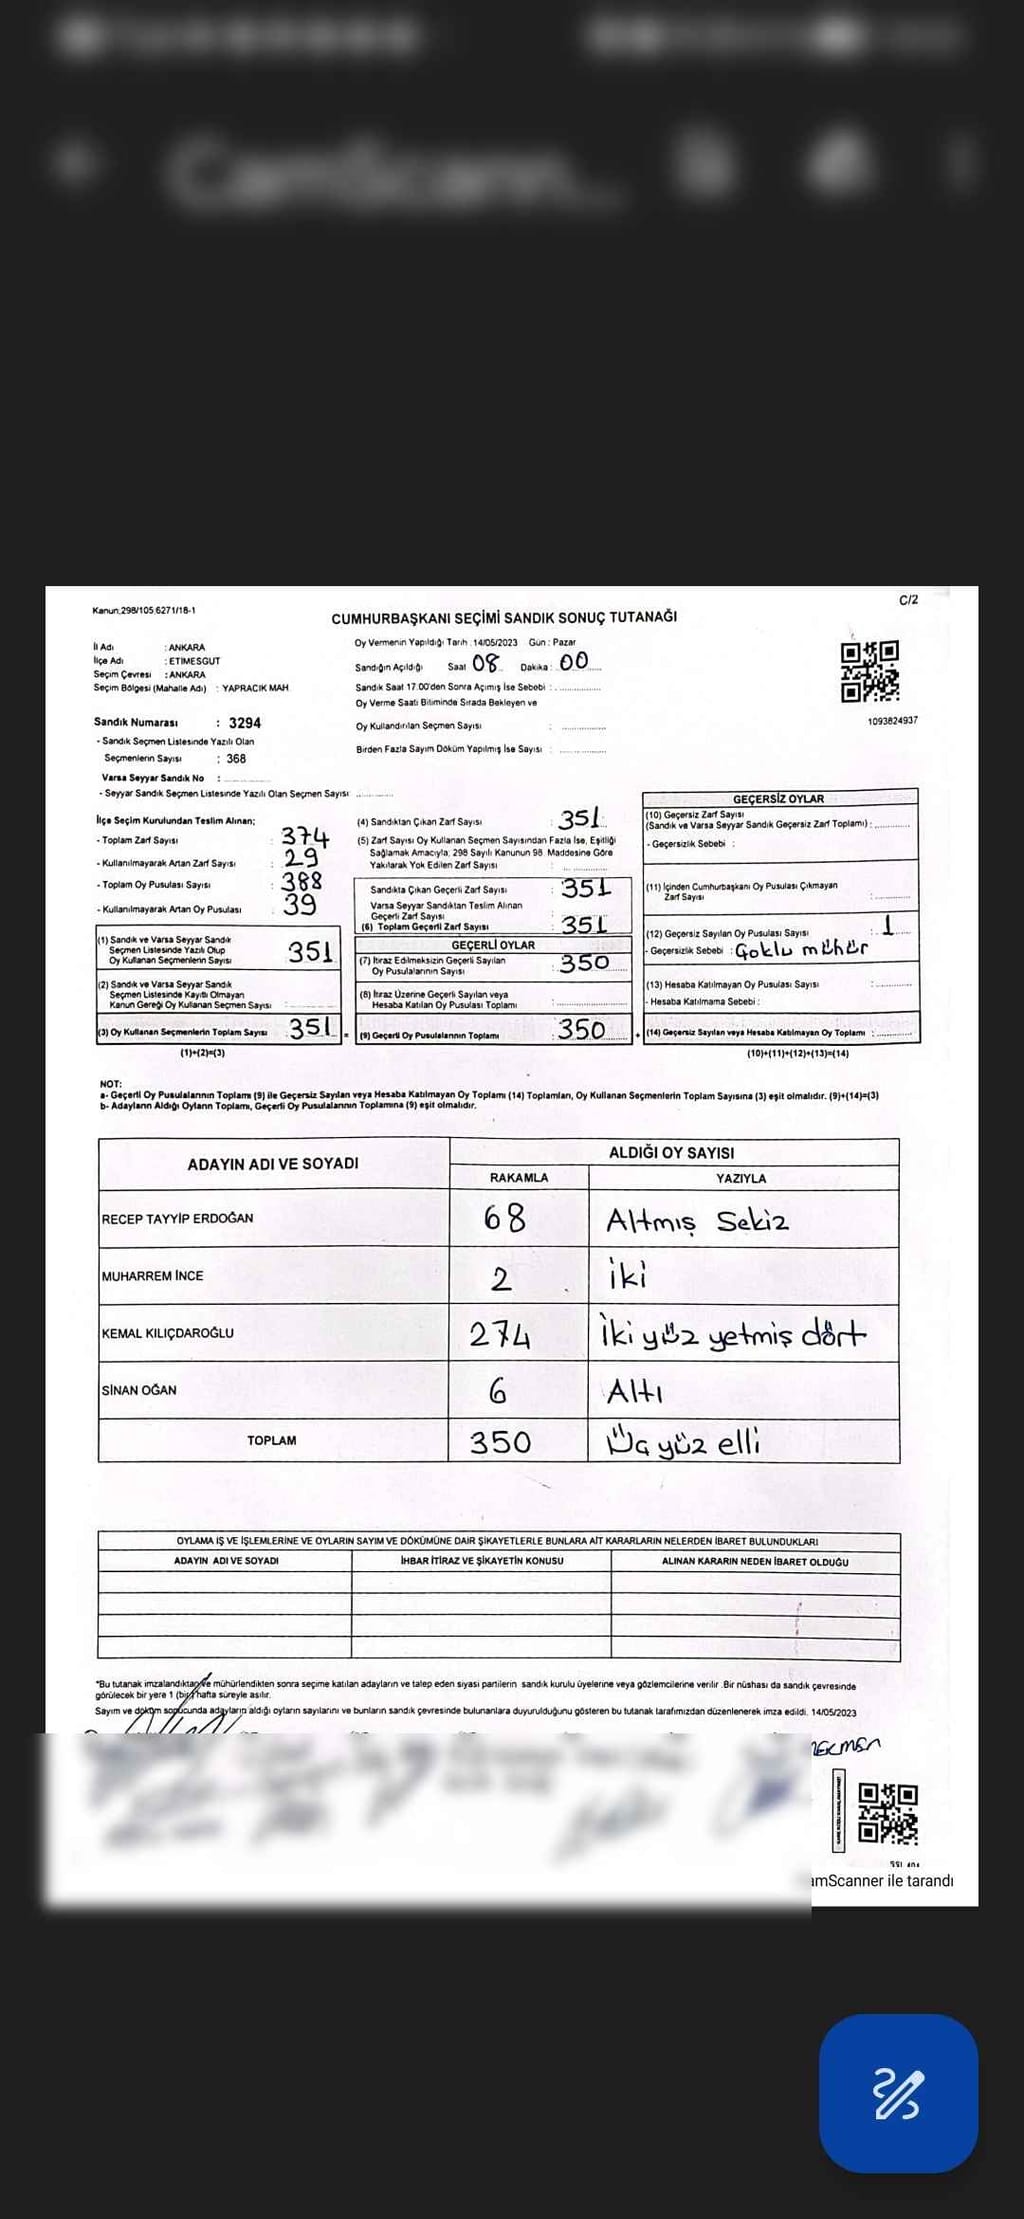 Kanun:298/105,6271/18-1
C/2
CUMHURBAŞKANI SEÇİMİ SANDIK SONUÇ TUTANAĞI
İl Adı : ANKARA
İlçe Adı : ETİMESGUT
Seçim Çevresi : ANKARA
Seçim Bölgesi (Mahalle Adı) : YAPRACIK MAH
Oy Vermenin Yapıldığı Tarih : 14/05/2023 Gün : Pazar
Sandığın Açıldığı Saat 08 Dakika : 00
Sandık Saat 17.00'den Sonra Açımış İse Sebebi :
Oy Verme Saati Bitiminde Sırada Bekleyen ve
Oy Kullandırılan Seçmen Sayısı :
Birden Fazla Sayım Döküm Yapılmış İse Sayısı :
1093824937
Sandık Numarası : 3294
- Sandık Seçmen Listesinde Yazılı Olan
Seçmenlerin Sayısı : 368
Varsa Seyyar Sandık No :
- Seyyar Sandık Seçmen Listesinde Yazılı Olan Seçmen Sayısı
İlçe Seçim Kurulundan Teslim Alınan;
- Toplam Zarf Sayısı : 374
- Kullanılmayarak Artan Zarf Sayısı : 29
- Toplam Oy Pusulası Sayısı : 388
- Kullanılmayarak Artan Oy Pusulası : 39
(1) Sandık ve Varsa Seyyar Sandık
Seçmen Listesinde Yazılı Olup
Oy Kullanan Seçmenlerin Sayısı 351
(2) Sandık ve Varsa Seyyar Sandık
Seçmen Listesinde Kayıtlı Olmayan
Kanun Gereği Oy Kullanan Seçmen Sayısı
(3) Oy Kullanan Seçmenlerin Toplam Sayısı 351 =
(1)+(2)=(3)
(4) Sandıktan Çıkan Zarf Sayısı : 351
(5) Zarf Sayısı Oy Kullanan Seçmen Sayısından Fazla İse, Eşitliği
Sağlamak Amacıyla, 298 Sayılı Kanunun 98. Maddesine Göre
Yakılarak Yok Edilen Zarf Sayısı :
Sandıkta Çıkan Geçerli Zarf Sayısı : 351
Varsa Seyyar Sandıktan Teslim Alınan
Geçerli Zarf Sayısı :
(6) Toplam Geçerli Zarf Sayısı : 351
GEÇERLİ OYLAR
(7) İtiraz Edilmeksizin Geçerli Sayılan
Oy Pusulalarının Sayısı : 350
(8) İtiraz Üzerine Geçerli Sayılan veya
Hesaba Katılan Oy Pusulası Toplamı :
(9) Geçerli Oy Pusulalarının Toplamı : 350 +
GEÇERSİZ OYLAR
(10) Geçersiz Zarf Sayısı
(Sandık ve Varsa Seyyar Sandık Geçersiz Zarf Toplamı) :
- Geçersizlik Sebebi :
(11) İçinden Cumhurbaşkanı Oy Pusulası Çıkmayan
Zarf Sayısı :
(12) Geçersiz Sayılan Oy Pusulası Sayısı : 1
- Geçersizlik Sebebi : Çoklu mühür
(13) Hesaba Katılmayan Oy Pusulası Sayısı :
- Hesaba Katılmama Sebebi :
(14) Geçersiz Sayılan veya Hesaba Katılmayan Oy Toplamı :
(10)+(11)+(12)+(13)=(14)
NOT:
a- Geçerli Oy Pusulalarının Toplamı (9) ile Geçersiz Sayılan veya Hesaba Katılmayan Oy Toplamı (14) Toplamları, Oy Kullanan Seçmenlerin Toplam Sayısına (3) eşit olmalıdır. (9)+(14)=(3)
b- Adayların Aldığı Oyların Toplamı, Geçerli Oy Pusulalarının Toplamına (9) eşit olmalıdır.
ADAYIN ADI VE SOYADI
ALDIĞI OY SAYISI
RAKAMLA YAZIYLA
RECEP TAYYİP ERDOĞAN 68 Altmış Sekiz
MUHARREM İNCE 2 İki
KEMAL KILIÇDAROĞLU 274 İki yüz yetmiş dört
SİNAN OĞAN 6 Altı
TOPLAM 350 Üç yüz elli
OYLAMA İŞ VE İŞLEMLERİNE VE OYLARIN SAYIM VE DÖKÜMÜNE DAİR ŞİKAYETLERLE BUNLARA AİT KARARLARIN NELERDEN İBARET BULUNDUKLARI
ADAYIN ADI VE SOYADI İHBAR İTİRAZ VE ŞİKAYETİN KONUSU ALINAN KARARIN NEDEN İBARET OLDUĞU
*Bu tutanak imzalandıktan ve mühürlendikten sonra seçime katılan adayların ve talep eden siyasi partilerin sandık kurulu üyelerine veya gözlemcilerine verilir .Bir nüshası da sandık çevresinde
görülecek bir yere 1 (bir) hafta süreyle asılır.
Sayım ve döküm sonucunda adayların aldığı oyların sayılarını ve bunların sandık çevresinde bulunanlara duyurulduğunu gösteren bu tutanak tarafımızdan düzenlenerek imza edildi. 14/05/2023
amScanner ile tarandı